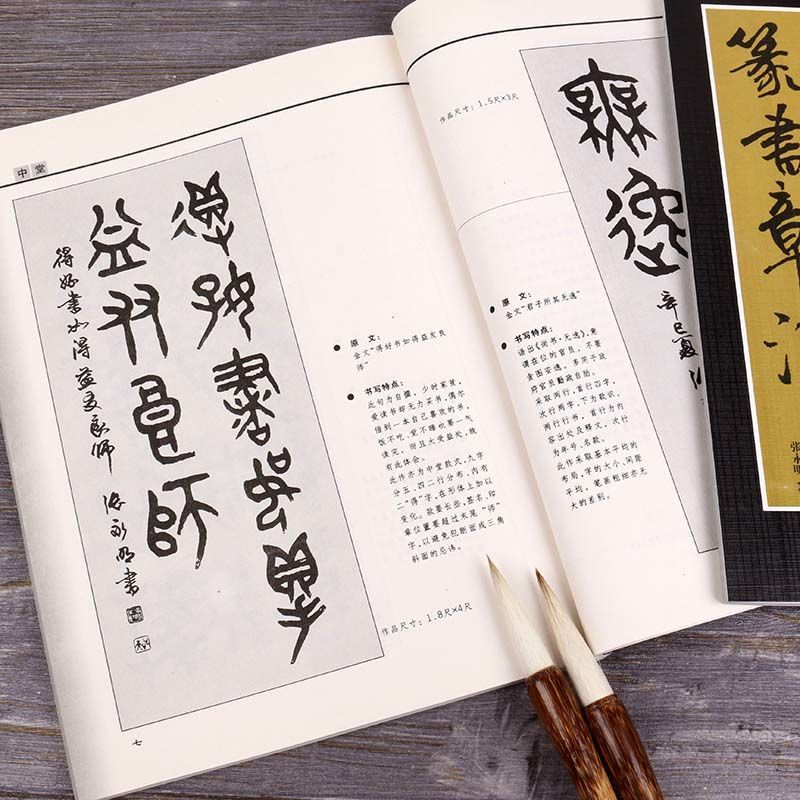 中堂
得好書如得
益友良師
得好書如得益友良師 张永明書
原文：
金文“得好书如得益友良
师”
书写特点：
此句为自撰，少时家贫，
爱读书却无力买书，偶尔
借到一本自己喜欢的书，
饭不吃、觉不睡也要一气
读完，而且大受益处，故
有此体会。
此作亦为中堂款式，九字
分五、四二行分布，内有
二“得”字，在形体上加以
变化。款要长些，签名、印
章位置要超过末尾“师”
字，以避免犯断面成三角
斜面的忌讳。
作品尺寸：1.8尺×4尺
七
作品尺寸：1.5尺×3尺
無逸
辛巳夏
原文：
金文“君子所其无逸”
书写特点：
语出《尚书·无逸》，意
谓在位的官员，不要
贪图安逸。多用于政
府官员勤政自勉。
采取两行，首行四字，
次行两字，下为款识，
两行行书，首行为内
容出处及释文，次行
为年号、名款。
此作采取基本平均的
布局，字的大小、间距
平均，笔画粗细亦无
大的差别。
篆書章法
张永明